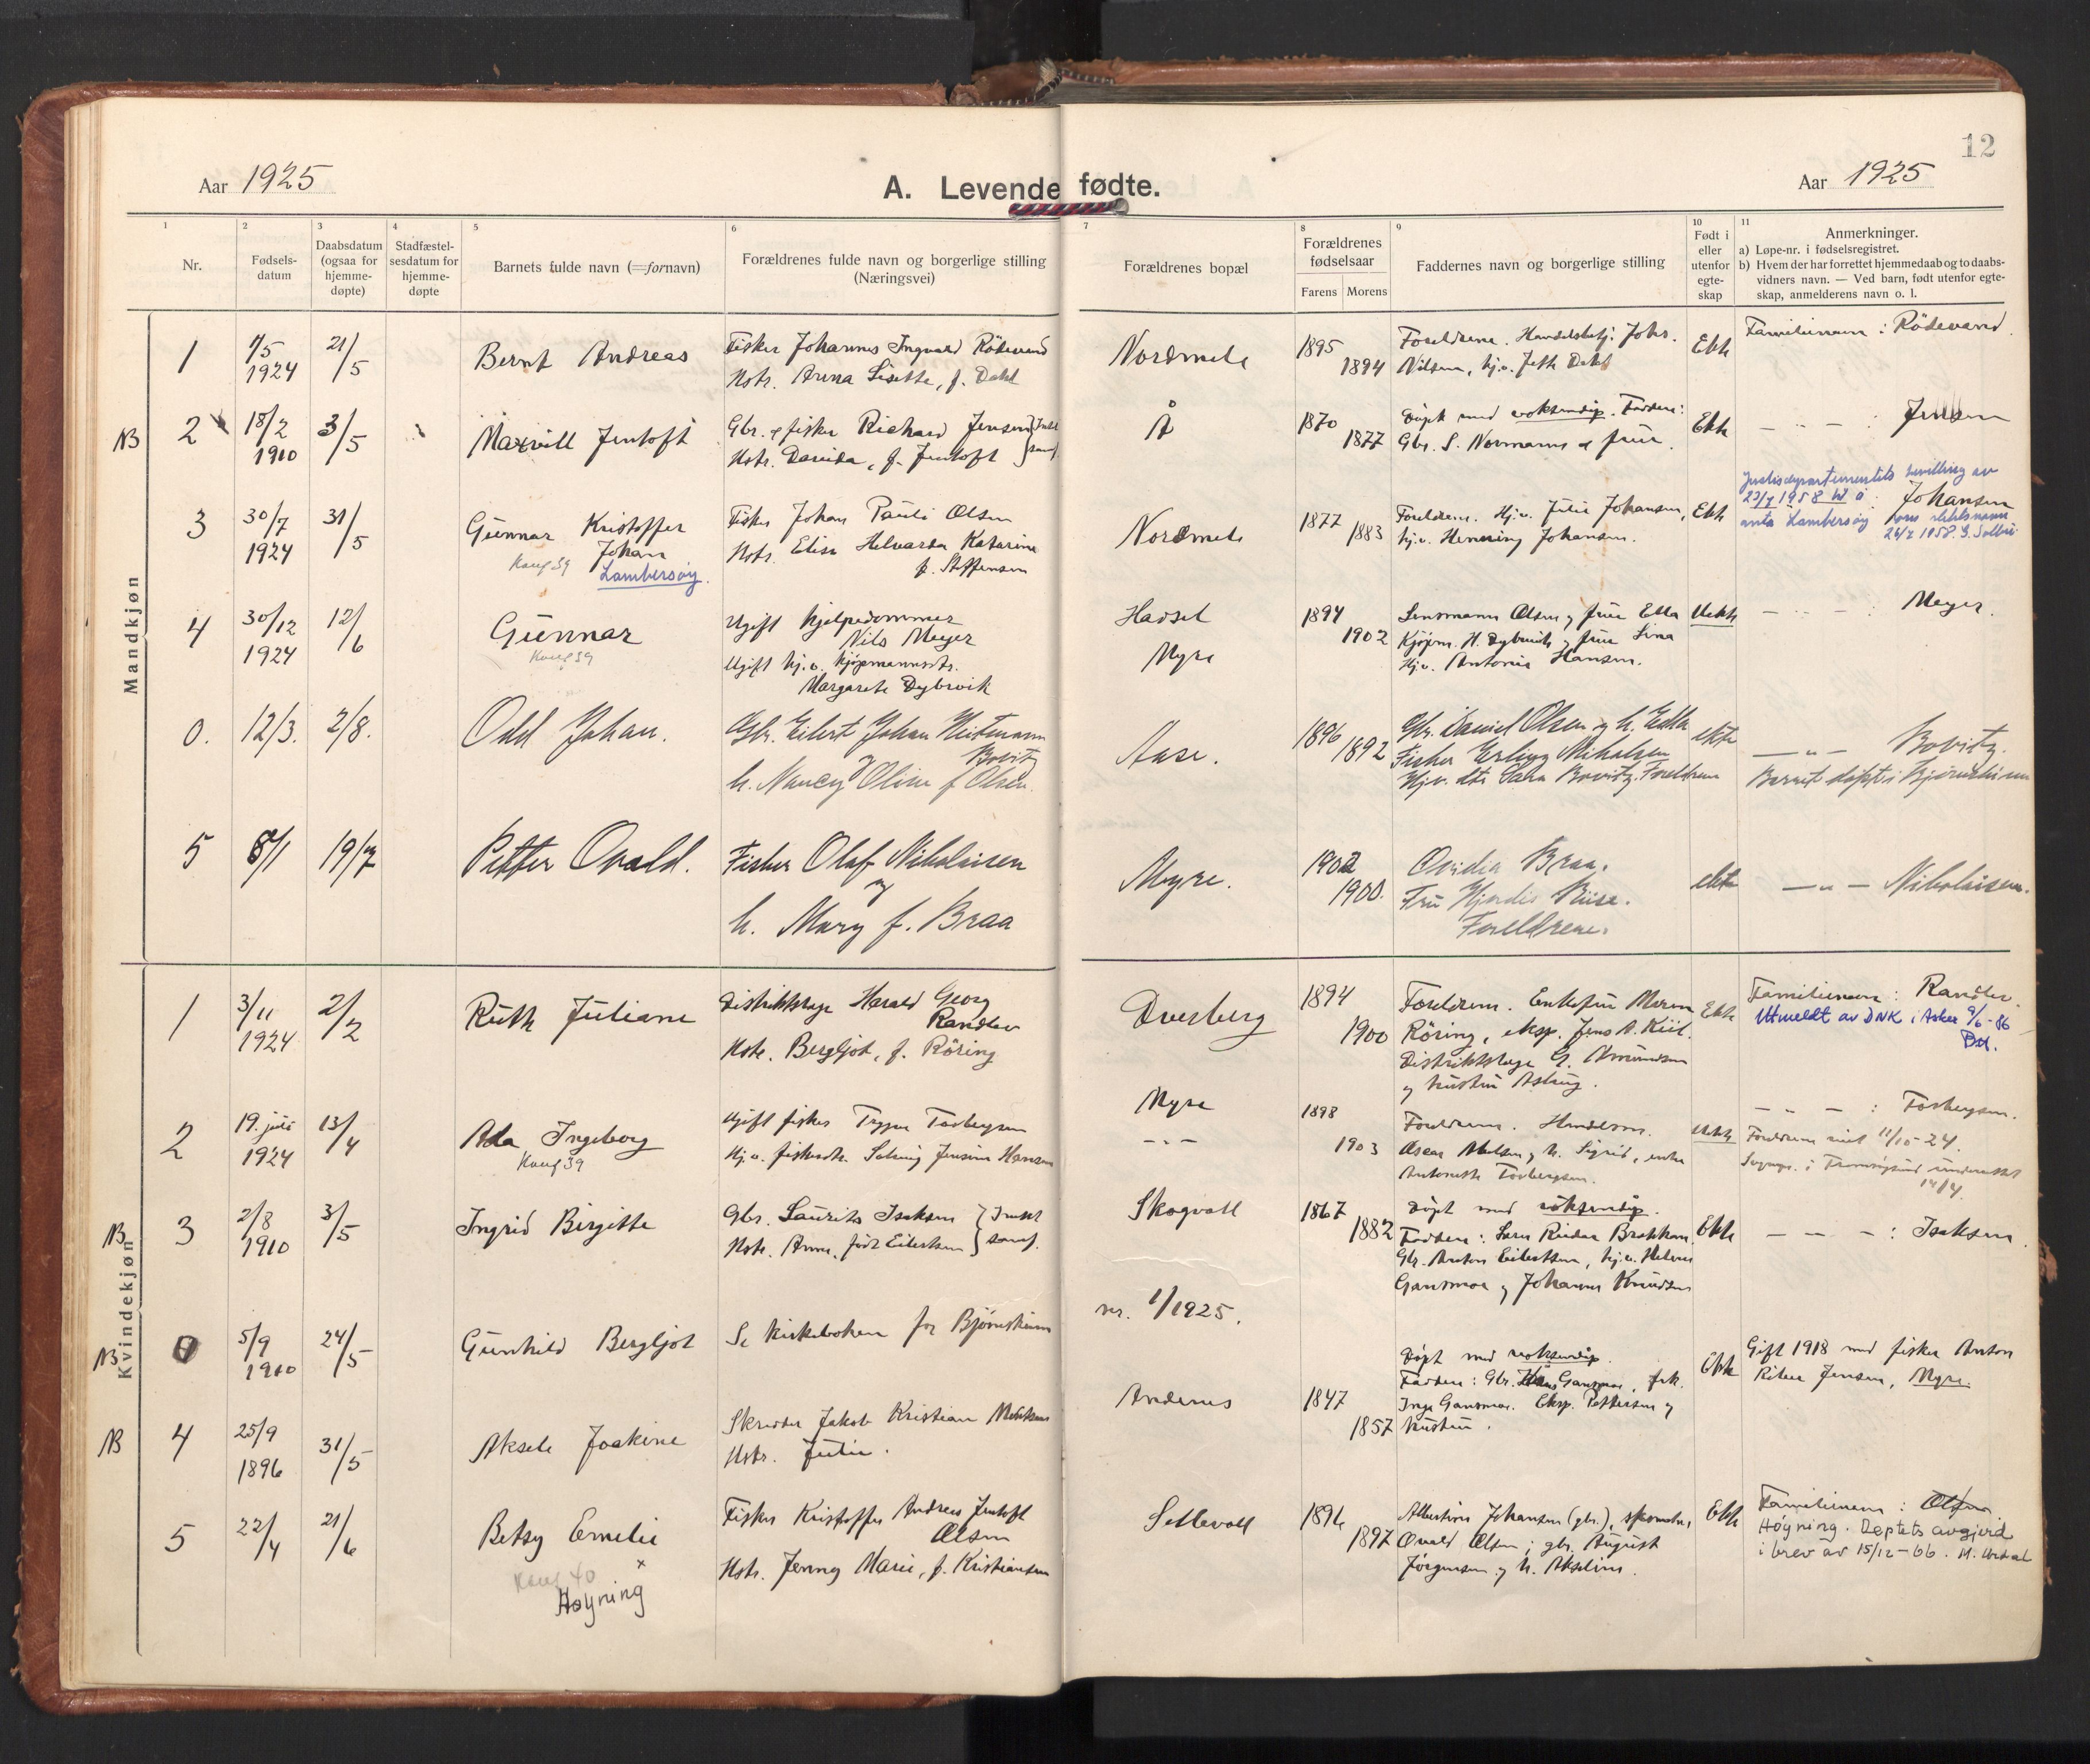 12
Aar 1925
A. Levende fødte.
Aar 1925
1 2 3 4 5 6 7 8 9 10 11
Nr.
Fødsels-
datum
Daabsdatum
(ogsaa for
hjemme-
døpte)
Stadfæstel-
sesdatum for
hjemme-
døpte
Barnets fulde navn (=fornavn)
Forældrenes fulde navn og borgerlige stilling
(Næringsvei)
Forældrenes bopæl
Forældrenes
fødselsaar
Farens Morens
Faddernes navn og borgerlige stilling
Født i
eller
utenfor
egte-
skap
Anmerkninger.
a) Løpe-nr. i fødselsregistret.
b) Hvem der har forrettet hjemmedaab og to daabs-
vidners navn. — Ved barn, født utenfor egte-
skap, anmelderens navn o. l.
Mandkjøn
1
1/5
1924
21/5
Bernt Andreas
Fisker Johannes Ingvald Rödevand
Hstr. Anna Lisette, f. Dahl
Nordmela
1895
1894
Foreldrene. Handelsbetj. Johs.
Nilsen, hj.v. Jette Dahl
Ekte
Familienavn: Rödevand.
NB
2
18/2
1910
3/5
Maxvill Jentoft
Gbr. & fisker Richard Jensen
Hstr. Davida, f. Jentoft
Å
1870
1877
Døpt med voksendåp. Faddere:
Gbr. S. Normann & frue.
Ekte
— " — : Jensen
3
30/7
1924
31/5
Gunnar Kristoffer
Johan
Konf 39
Lambersøy.
Fisker Johan Pauli Olsen
Hstr. Elisa Helvarda Katarina
f. Steffensen
Nordmela
1877
1883
Foreldrene. Hj.v. Julie Johansen,
hj.v. Henning Johansen.
Ekte
Justisdepartementets bevilling av
Johansen
anta Lambersøy
4
30/12
1924
12/6
Gunnar
Konf 39
Ugift hjelpedommer
Nils Meyer
Ugift hj.v. kjøpmannsdtr.
Margarete Dybwik
Hadsel
Myre
1894
1902
Lensmann Olsen og frue Ella
Kjøpm. H. Dybwik og frue Lina
Hj.v. Antonie Hansen.
Uekte
— " — : Meyer.
0.
12/3.
2/8.
Odd Johan.
Gbr. Eilert Johan Heitmann
Bovitz
og
h. Nancy Oline f Olsen.
Aase.
1896
1892
Gbr. Daniel Olsen og h. Edle
Fisker Erling Nikolsen
Hjv. dtr Sara Bovitz. Foreldrene
ekte
— " — Bovitz.
Barnet döpt i Bjørnskinn
5
8/1
19/7
Petter Ovald.
Fisker Olaf Nikolaisen
og
h. Mary f. Braa
Myre.
1902
1900.
Ovidia Braa.
Fru Hjørdis Riise.
Foreldrene.
ekte
— " — Nikolaisen.
Kvindekjøn
1
3/11
1924
2/2
Ruth Juliane
Distriktslæge Harald Georg
Randlev
Hstr. Bergljot, f. Röring
Dverberg
1894
1900
Foreldrene. Enkefru Maren
Röring, eksp. Jens A. Kiil.
Distriktslæge G. Amundsen
og hustru Aslaug.
Ekte
Familienavn: Randlev.
Utmeldt av DNK i Asker 9/6-86
2
19. juli
1924
13/4
Ada Ingeborg
Konf 39
Ugift fisker Trygve Torbergsen
Hj.v. fiskerdtr. Solveig Jensine Hansen
Myre
— " —
1898
1903
Foreldrene. Handelsm.
Oscar Nilsen og h. Sigrid, enke
Antonette Torbergsen.
Uekte
— " — : Torbergsen.
Foreldrene viet 11/10-24.
14/4.
NB
3
2/8
1910
3/5
Ingrid Birgitte
Gbr. Laurits Isaksen
Hstr. Anna, født Eilertsen
Skogvoll
1867
1882
Døpt med voksendåp.
Faddere: Lærer Reidar Brekkan.
Gbr. Anton Eilertsen, hj.v. Helene
Gansmoe og Johannes Knudsen
Ekte
— — — : Isaksen.
NB
0
5/9
1910
24/5
Gunhild Bergljot
Se kirkeboken for Bjørnskinn
nr. 1/1925.
NB
4
25/9
1896
31/5
Aksele Joakine
Skredder Jakob Kristian
Hstr. Julie.
Andenes
1847
1857
Døpt med voksendåp.
Faddere: Gbr. Gansmoe, frk.
Inga Gansmoe. Eksp. Pettersen og
hustru.
Ekte
Gift 1918 med fisker Anton
Jensen, Myre
5
22/4
21/6
Betsy Emelie
Konf 40
x
Høyning
Fisker Kristoffer Andreas Jentoft
Olsen
Hstr. Jenny Marie, f. Kristiansen
Sellevoll
1896
1897
Albertine Johansen (gbr.), skomaker
Ovald Olsen; gbr. August
Jörgensen og h. Akseline.
Ekte
Familienavn: Olsen
Høyning. Deptets avgjørd
i brev av 15/12-66.